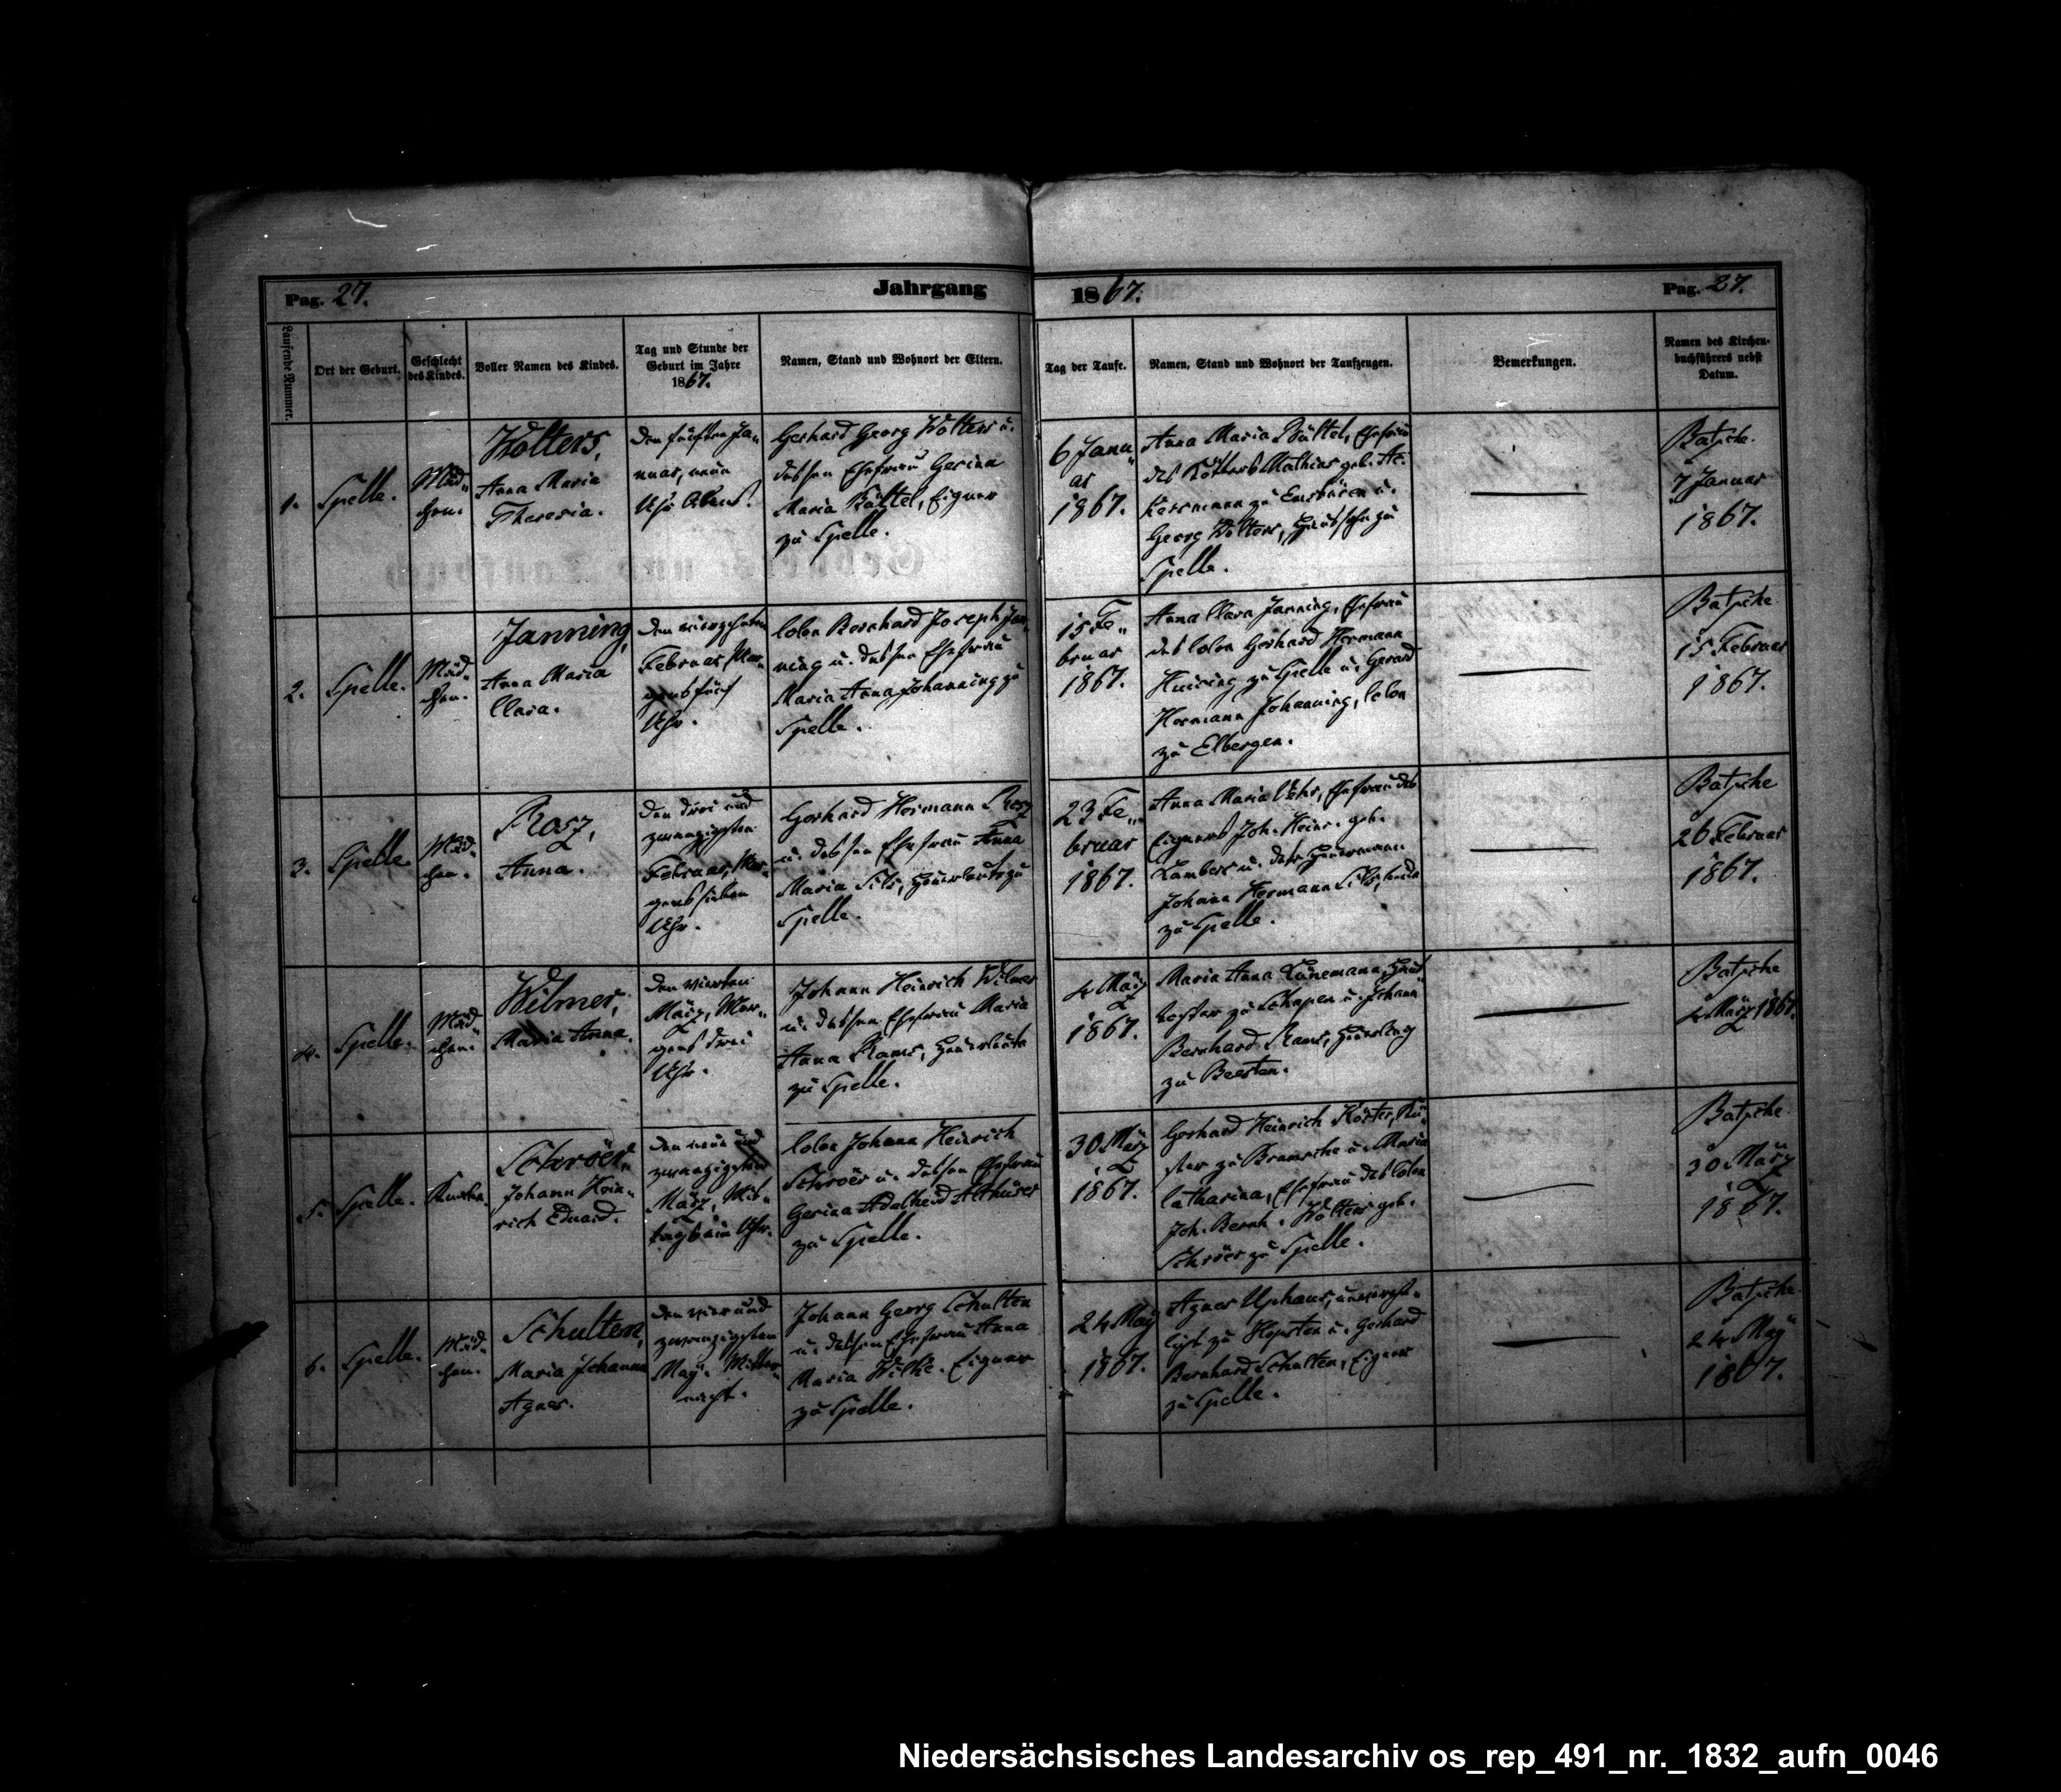 Pag. 27.
Jahrgang
1867.
Pag. 27.
Laufende Nummer.
Ort der Geburt.
Geschlecht
des Kindes.
Voller Namen des Kindes.
Tag und Stunde der
Geburt im Jahre
1867.
Namen, Stand und Wohnort der Eltern.
Tag der Taufe.
Namen, Stand und Wohnort der Taufzeugen.
Bemerkungen.
Namen des Kirchen-
buchführers nebst
Datum.
1.
Spelle.
Mäd-
chen.
Wolters,
Anna Maria
Theresia.
Den fünften Ja-
nuar, neun
Uhr Abends.
Gerhard Georg Wolters u.
dessen Ehefrau Gesina
Maria Büttel, Eigner
zu Spelle.
6 Janu-
ar
1867.
Anna Maria Büttel, Ehefrau
des Kötters Mathias geb.
zu Emsbüren u.
Georg Wolters, Haussohn zu
Spelle.
Batsche
7 Januar
1867.
2.
Spelle.
Mäd-
chen.
Janning,
Anna Maria
Clara.
Den vierzehnten
Februar, Mor-
gens fünf
Uhr.
Colon Bernhard Joseph Jan-
ning u. dessen Ehefrau
Maria Anna Johanning zu
Spelle.
15 Fe-
bruar
1867.
Anna Clara Janning, Ehefrau
des Colon Gerhard Hermann
zu Spelle u. Gerard
Hermann Johanning, Colon
zu Elbergen.
Batsche
15 Februar
1867.
3.
Spelle.
Mäd-
chen.
Rosz,
Anna.
Den drei und
zwanzigsten
Februar, Mor-
gens sieben
Uhr.
Gerhard Hermann Rosz
u. dessen Ehefrau Anna
Maria Sils, Heuerleute zu
Spelle.
23 Fe-
bruar
1867.
Anna Maria Ehefrau des
Eigners Joh. Heinr. geb.
Lambers u. der Heuermann
Johann Hermann Sils, beide
zu Spelle.
Batsche
26 Februar
1867.
4.
Spelle.
Mäd-
chen.
Wilmer,
Maria Anna.
Den vierten
März, Mor-
gens drei
Uhr.
Johann Heinrich Wilmer
u. dessen Ehefrau Maria
Anna Rams, Heuerleute
zu Spelle.
4 März
1867.
Maria Anna Lünemann, Haus-
tochter zu Schapen u. Johann
Bernhard Rams, Heuerling
zu Beesten.
Batsche
4 März 1867.
5.
Spelle.
Knabe.
Schröer,
Johann Hein-
rich Eduard.
Den neun und
zwanzigsten
März, Mit-
tags ein Uhr.
Colon Johann Heinrich
Schröer u. dessen Ehefrau
Gesina Adelheid Althüser
zu Spelle.
30 März
1867.
Gerhard Heinrich Köster, Kü-
ster zu Bramsche u. Maria
Catharina, Ehefrau des Colon
Joh. Bernh. Wolters geb.
Schröer zu Spelle.
Batsche
30 März
1867.
6.
Spelle.
Mäd-
chen.
Schulten,
Maria Johanna
Agnes.
Den vier und
zwanzigsten
May. Mitter-
nacht.
Johann Georg Schulten
u. dessen Ehefrau Anna
Maria Wilke. Eigner
zu Spelle.
24 May
1867.
Agnes Uphaus, unverehe-
ligt zu Hopsten u. Gerhard
Bernhard Schulten, Eigner
zu Spelle.
Batsche
24 May
1867.
Niedersächsisches Landesarchiv os_rep_491_nr._1832_aufn_0046